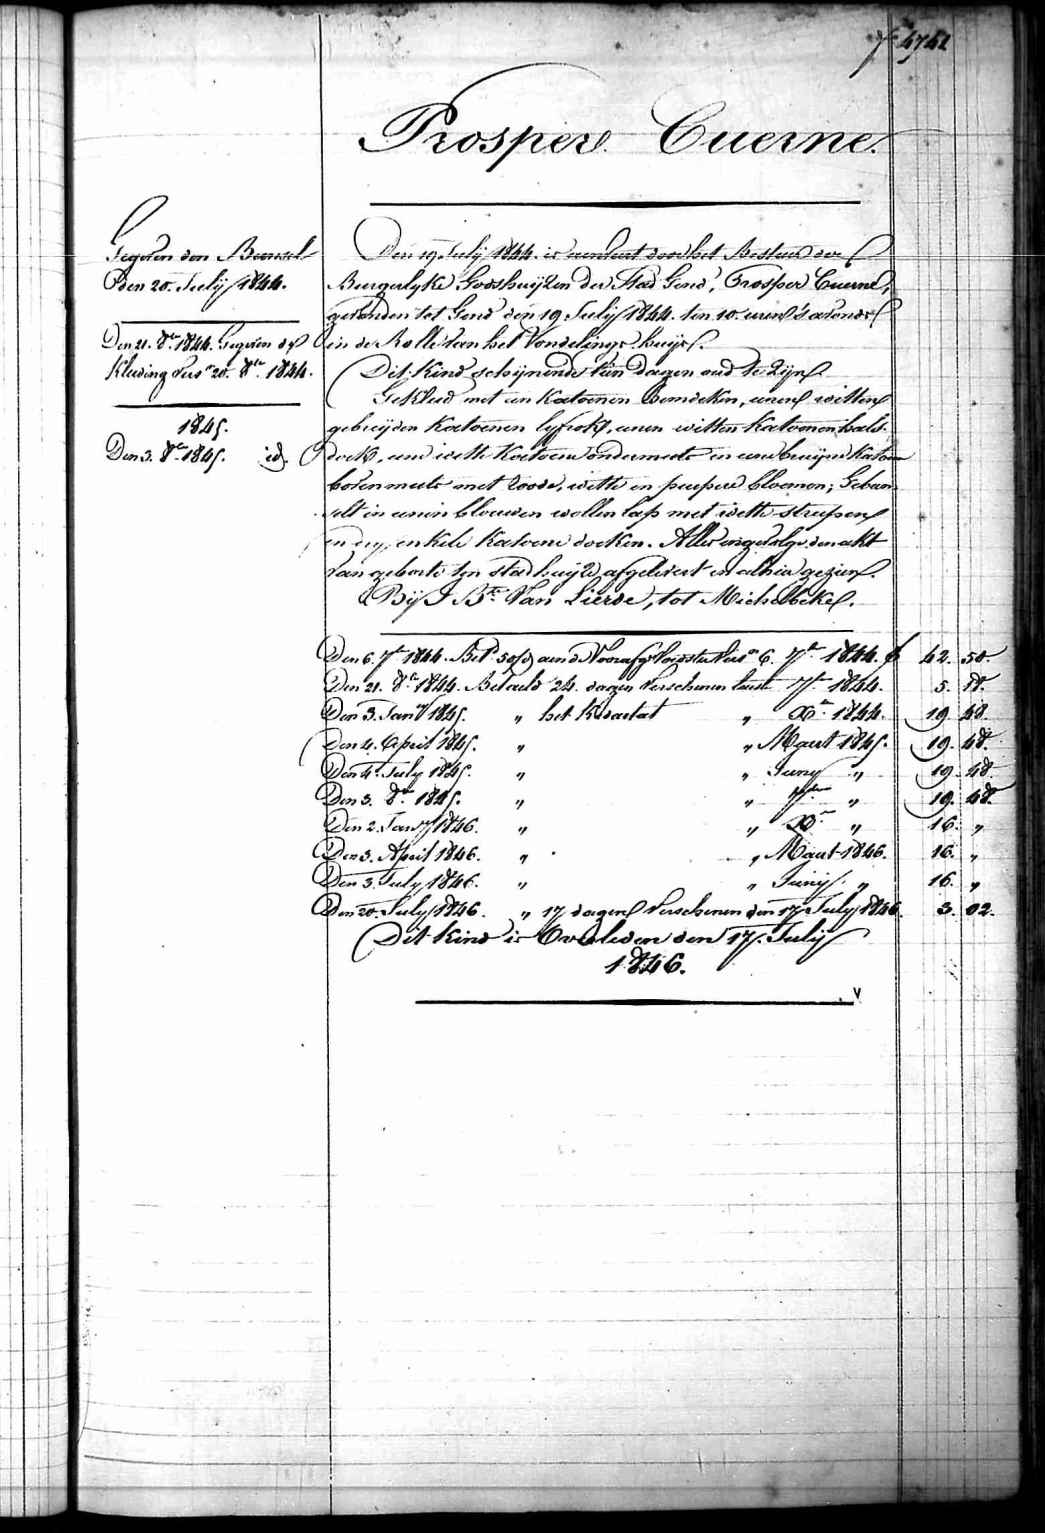 f 4742
Prosper Cuerne.
Gegeven den Bunsel
den 20. July 1844.
Den 21. 8.re 1844. Gegeven de
Kleeding vers.n 20. 8.re 1844.
1845.
Den 3. 8.re 1845. id.
Den 19 July 1844. is aenveert door het Bestuer der
Burgerlyke Godshuijzen der Stad Gend, Prosper Cuerne,
gevonden tot Gend den 19 July 1844. ten 10 uren 's avonds
in de Rolle van het Vondelings-huijs.
Dit kind schijnende dagen oud te zijn
Gekleed met een katoenen hemdeken, eenen witten
gebreijden katoenen lyfrok, eenen witten katoenen hals-
doek, eene witte katoene ondermuts en eene bruijne katoene
bovenmuts met roode, witte en purpere bloemen; Gebun-
selt in eenen blauwen wollen lap met witte streepen
en enkele katoene doeken. Alles ingevolge den akt
van geborte ten stadhuijze afgelevert en alhier gezien.
Bij J B.te Van Lierde, tot Michelbeke.
Den 6. 7.re 1844. Bet.d aen de Voorafg Voedster Vers.n 6. 7.re 1844. f 42. 50.
Den 21. 8.re 1844. Betaeld 24. dagen Verschenen laest 7.re 1844. 5. 18.
Den 3. Janv 1845. " het Kwartat " X.re 1844. 19. 48.
Den 4. April 1845. " " Maert 1845. 19. 48.
Den 4. July 1845. " " Juny " 19. 48.
Den 3. 8.re 1845. " " 7.re " 19. 48.
Den 2. Janv 1846. " " X.re " 16. "
Den 3. April 1846. " " Maert 1846. 16. "
Den 3. July 1846. " " Juny " 16. "
Den 20. July 1846. " 17 dagen Verschenen den 17 July 1846. 3. 02.
Dit kind is Overleden den 17. July
1846.